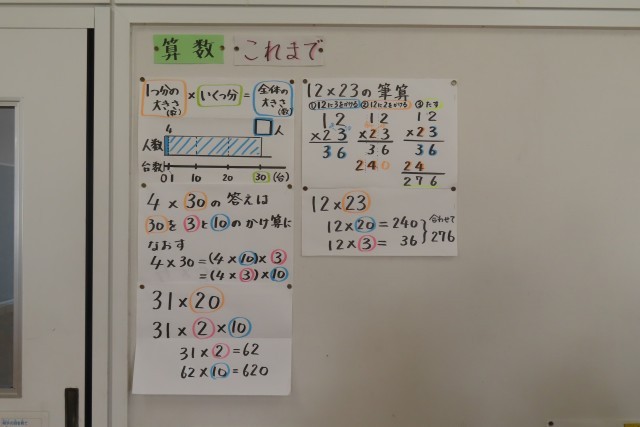 算数 これまで
1つ分の大きさ(数) × いくつ分 = 全体の大きさ(数)
4 □人
人数
台数
0 1 10 20 30 (台)
4×30の答えは
30を3と10のかけ算に
なおす
4×30=(4×10)×3
=(4×3)×10
31×20
31×2×10
31×2=62
62×10=620
12×23の筆算
①12に3をかける ②12に2をかける ③たす
12 12 12
×23 ×23 ×23
36 36 36
240 24
276
12×23
12×20=240
12×3=36
合わせて
276